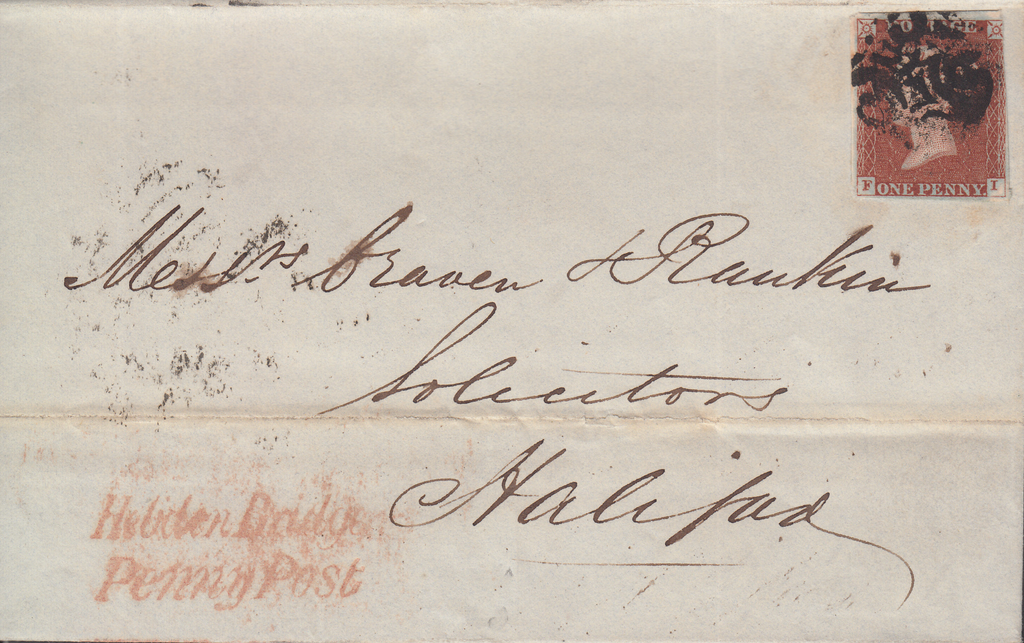 POSTAGE
F ONE PENNY. I
Messrs Craven & Rankin
Solicitors
Halifax
Hebden Bridge
Penny Post